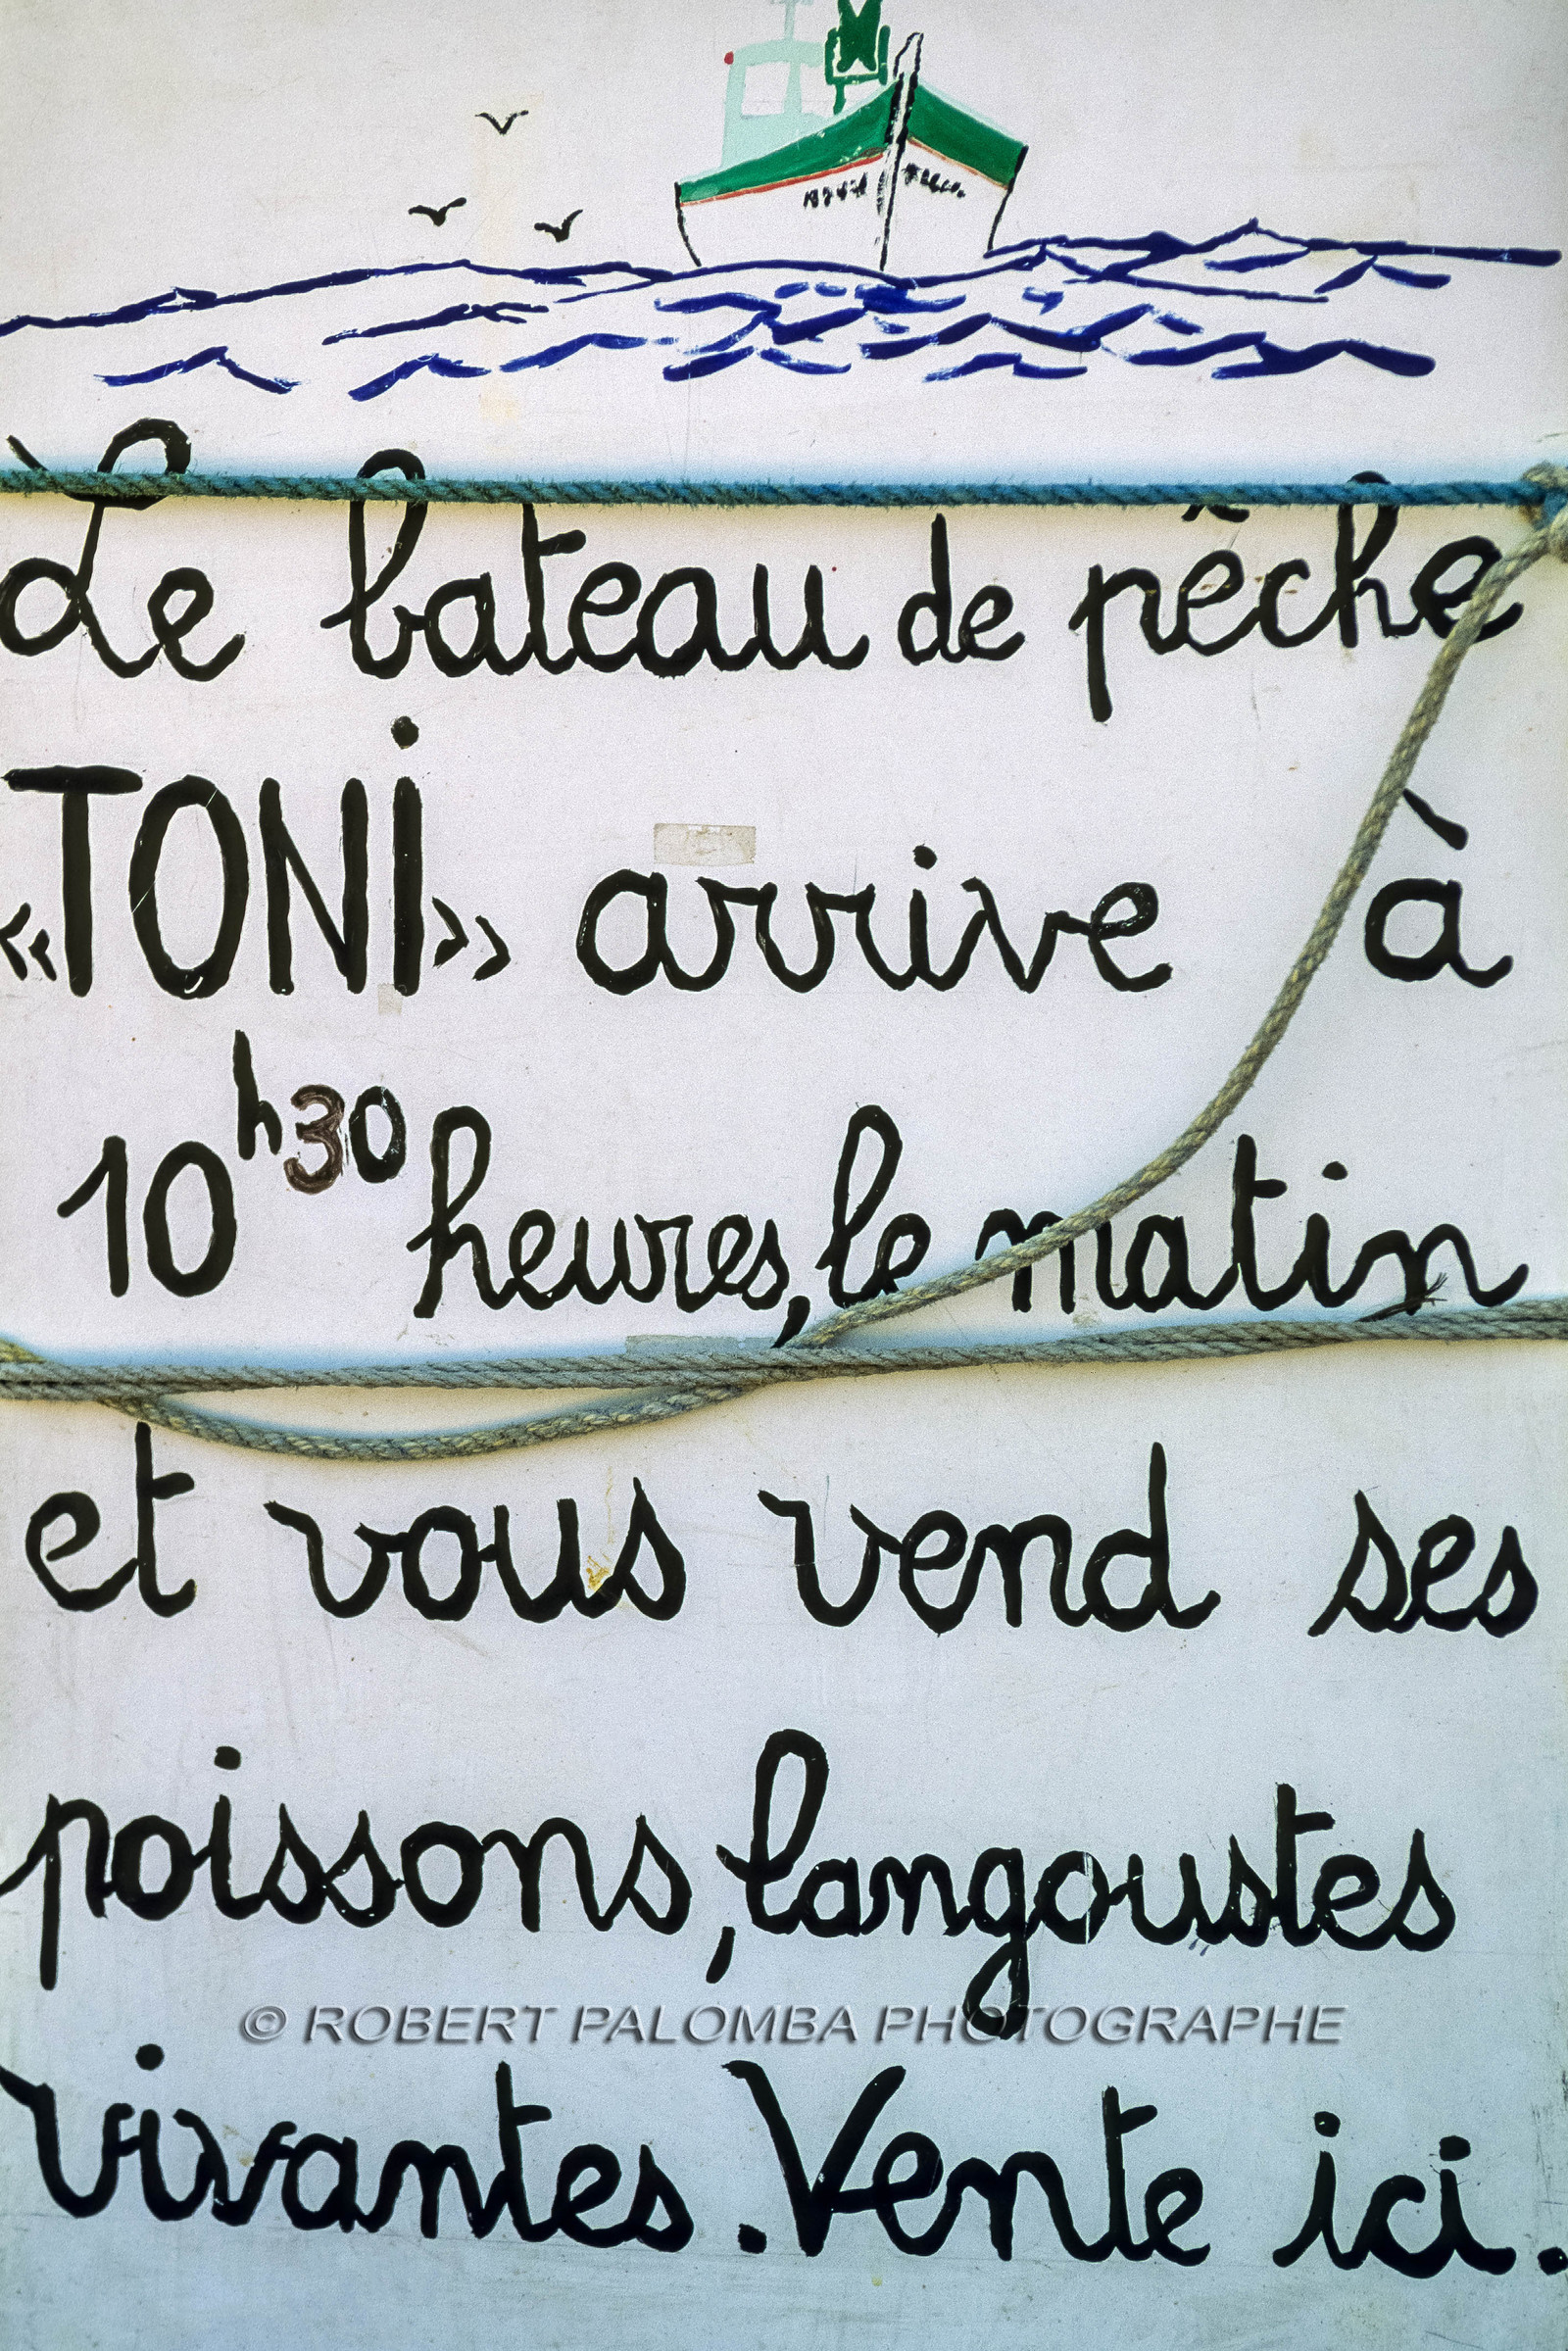 Le bateau de pêche
«TONi» arrive à
10h30 heures, le matin
et vous vend ses
poissons, langoustes
© ROBERT PALOMBA PHOTOGRAPHE
vivantes. Vente ici.